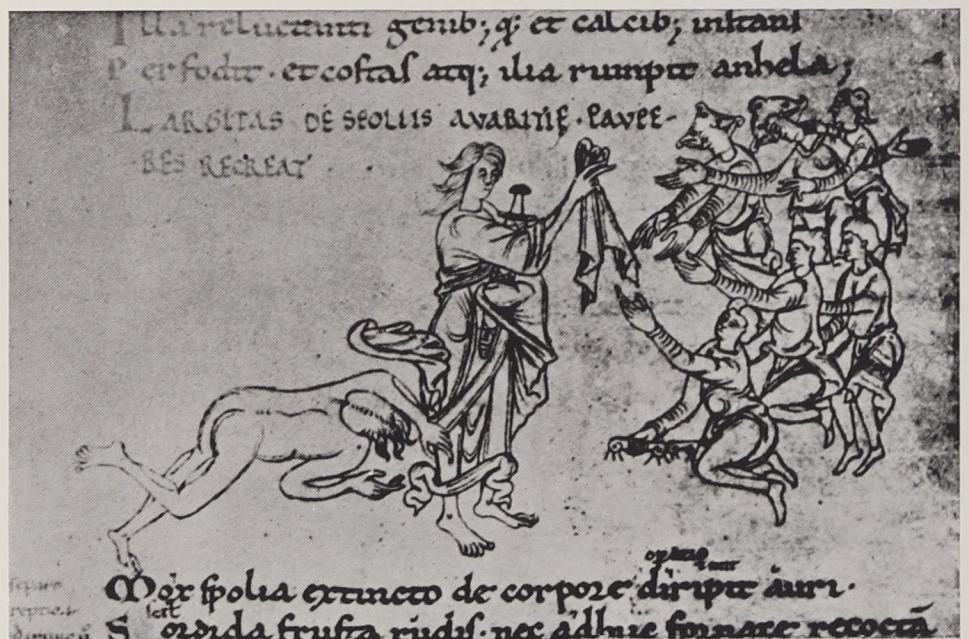 Illa reluctanti genib; q; et calcib; instans
Perfodit · et costas atq; ilia rumpit anhela;
LARGITAS DE SPOLIIS AVARITIE · PAUPE-
RES RECREAT
Mox spolia extincto de corpore diripit auri ·
Sordida frusta rudis · nec adhuc fornace recoctā